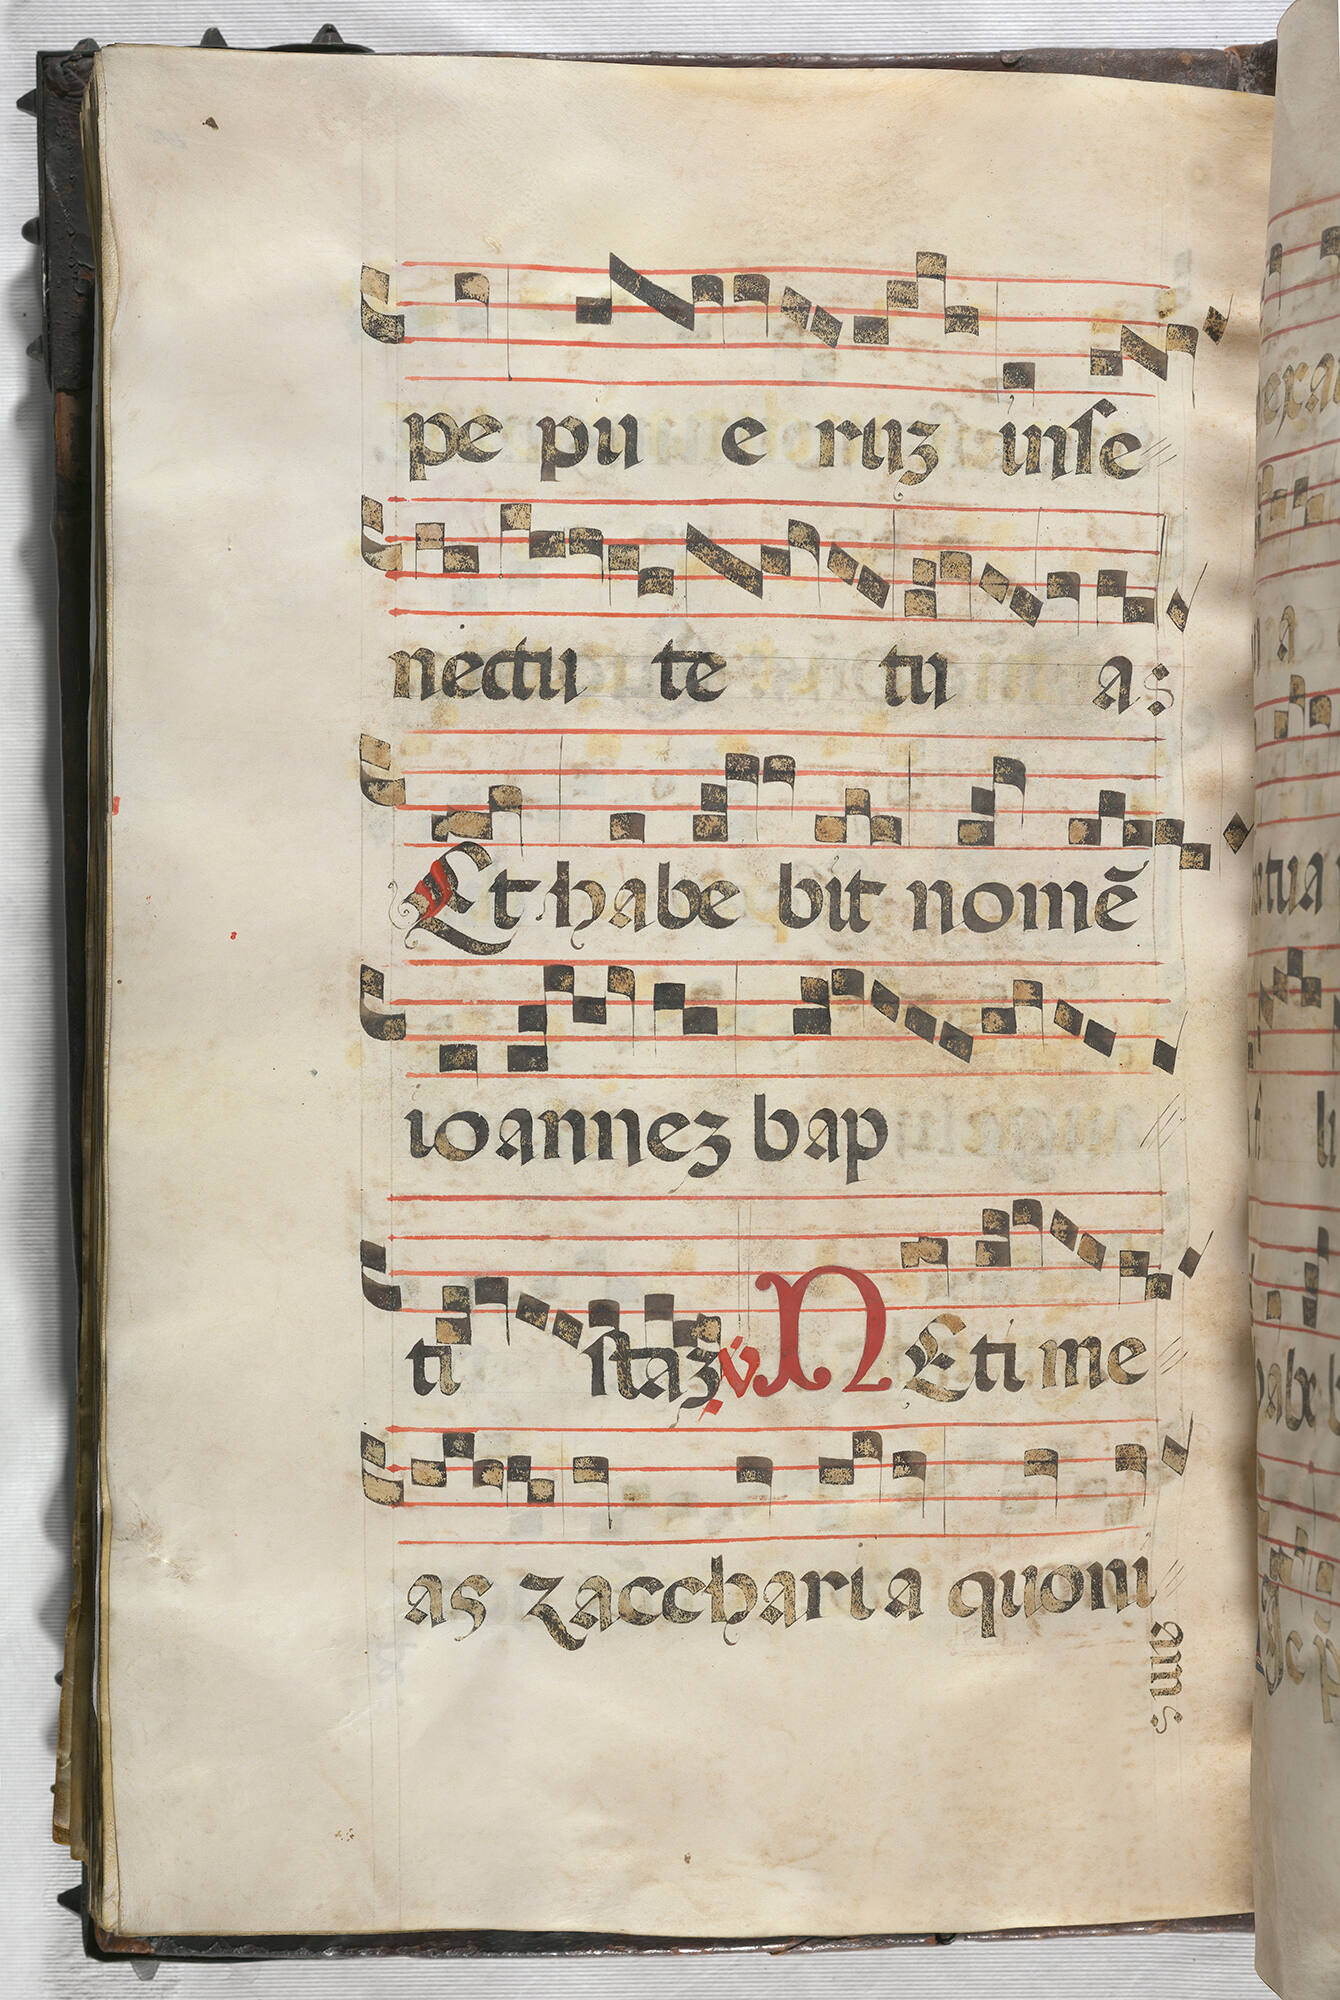 pe pu e ruz inse
nectu te tu a:
Et habe bit nomē
ioannez bap
ti staz ℣ NEti me
as zaccharia quoni
am: